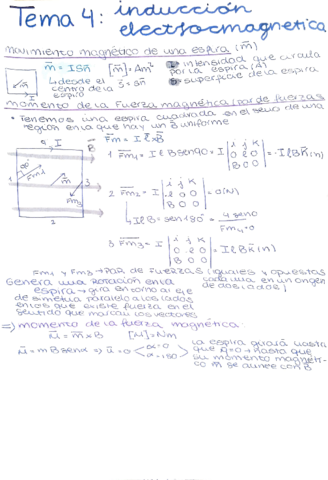 Tema 4: inducción
electrocmagnetica
movimiento magnético de una espira (m̄)
m̄ = IS̄n  [m̄] = Am²
① intensidad que circula
por la espira (A)
desde el
centro de la
espira
S̄ = Sn̄
② superficie de la espira
momento de la Fuerza magnética (par de fuerzas
• Tenemos una espira cuadrada en el seno de una
región en la que hay un B uniforme
F̄m = I l̄ x B̄
1 F̄m₁ = I l B sen90 = I | i j k / 0 l 0 / B 0 0 | = -I l B k̄ (n)
2 F̄m₂ = I | i j k / l 0 0 / B 0 0 | = 0 (N)
I l B = sen 180° =
Fm₄ = 0
3 F̄m₃ = I | i j k / 0 l 0 / B 0 0 | = I l B k̄ (n)
Fm₁ y Fm₃ → PAR de FUERZAS (iguales y opuestas
cada una en un
de dos lados)
Genera una rotación en la
espira → gira en torno al eje
de simetría paralelo a los lados
en los que existe fuerza en el
sentido que marcan los vectores
⇒) momento de la fuerza magnética:
M̄ = m̄ x B  [M̄] = Nm
ū = m B senα ⇒ ū = 0 < α = 0
α = 180
la espira girará hasta
que α = 0 → hasta que
su momento magnéti-
co m̄ se alinee con B̄